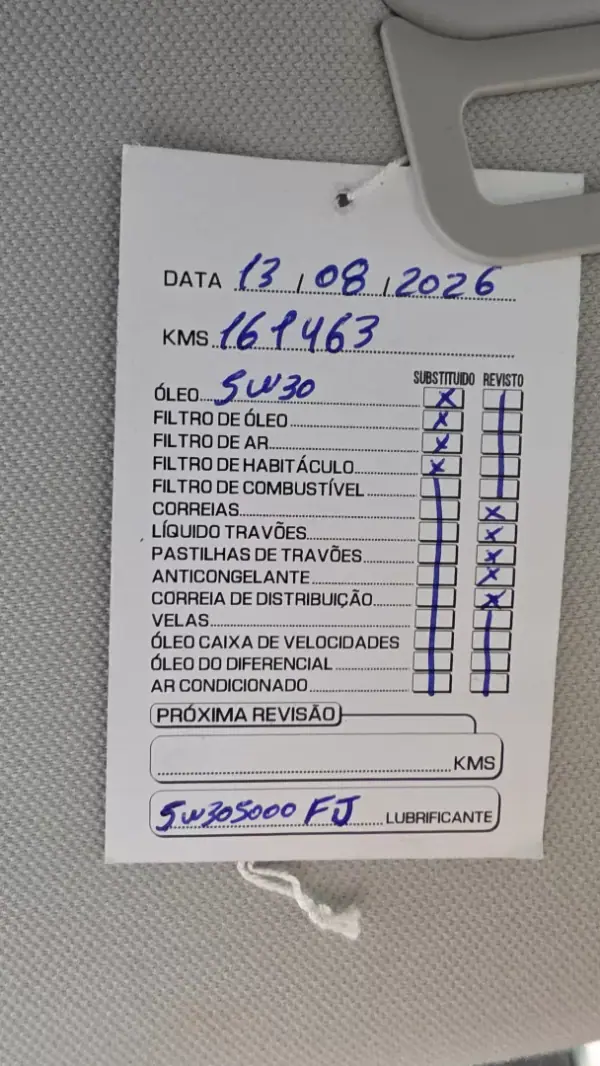 DATA 13 / 08 / 2026
KMS. 161463
SUBSTITUIDO REVISTO
ÓLEO 5W30 X
FILTRO DE ÓLEO X
FILTRO DE AR X
FILTRO DE HABITÁCULO X
FILTRO DE COMBUSTÍVEL
CORREIAS X
LÍQUIDO TRAVÕES X
PASTILHAS DE TRAVÕES X
ANTICONGELANTE X
CORREIA DE DISTRIBUIÇÃO X
VELAS
ÓLEO CAIXA DE VELOCIDADES
ÓLEO DO DIFERENCIAL
AR CONDICIONADO
PRÓXIMA REVISÃO
KMS
5W305000 FJ LUBRIFICANTE